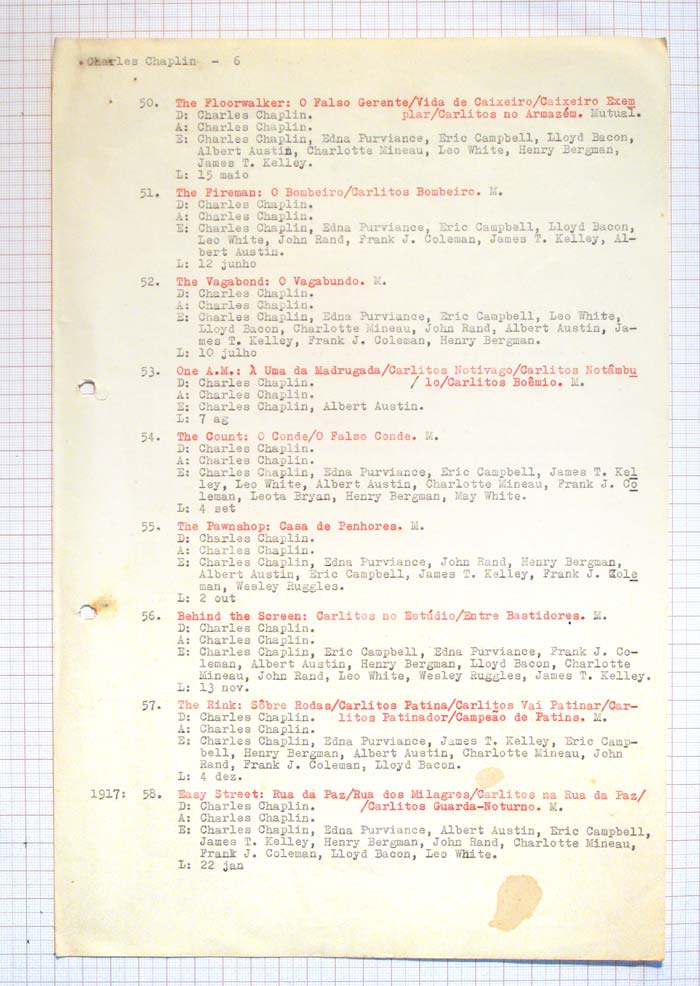 Charles Chaplin - 6
50. The Floorwalker: O Falso Gerente/Vida de Caixeiro/Caixeiro Exem
D: Charles Chaplin. plar/Carlitos no Armazém. Mutual.
A: Charles Chaplin.
E: Charles Chaplin, Edna Purviance, Eric Campbell, Lloyd Bacon,
Albert Austin, Charlotte Mineau, Leo White, Henry Bergman,
James T. Kelley.
L: 15 maio
51. The Fireman: O Bombeiro/Carlitos Bombeiro. M.
D: Charles Chaplin.
A: Charles Chaplin.
E: Charles Chaplin, Edna Purviance, Eric Campbell, Lloyd Bacon,
Leo White, John Rand, Frank J. Coleman, James T. Kelley, Al-
bert Austin.
L: 12 junho
52. The Vagabond: O Vagabundo. M.
D: Charles Chaplin.
A: Charles Chaplin.
E: Charles Chaplin, Edna Purviance, Eric Campbell, Leo White,
Lloyd Bacon, Charlotte Mineau, John Rand, Albert Austin, Ja-
mes T. Kelley, Frank J. Coleman, Henry Bergman.
L: 10 julho
53. One A.M.: À Uma da Madrugada/Carlitos Notívago/Carlitos Notâmbu
D: Charles Chaplin. / lo/Carlitos Boêmio. M.
A: Charles Chaplin.
E: Charles Chaplin, Albert Austin.
L: 7 ag
54. The Count: O Conde/O Falso Conde. M.
D: Charles Chaplin.
A: Charles Chaplin.
E: Charles Chaplin, Edna Purviance, Eric Campbell, James T. Kel
ley, Leo White, Albert Austin, Charlotte Mineau, Frank J. Co
leman, Leota Bryan, Henry Bergman, May White.
L: 4 set
55. The Pawnshop: Casa de Penhores. M.
D: Charles Chaplin.
A: Charles Chaplin.
E: Charles Chaplin, Edna Purviance, John Rand, Henry Bergman,
Albert Austin, Eric Campbell, James T. Kelley, Frank J. Cole
man, Wesley Ruggles.
L: 2 out
56. Behind the Screen: Carlitos no Estúdio/Entre Bastidores. M.
D: Charles Chaplin.
A: Charles Chaplin.
E: Charles Chaplin, Eric Campbell, Edna Purviance, Frank J. Co-
leman, Albert Austin, Henry Bergman, Lloyd Bacon, Charlotte
Mineau, John Rand, Leo White, Wesley Ruggles, James T. Kelley.
L: 13 nov.
57. The Rink: Sôbre Rodas/Carlitos Patina/Carlitos Vai Patinar/Car-
D: Charles Chaplin. litos Patinador/Campeão de Patins. M.
A: Charles Chaplin.
E: Charles Chaplin, Edna Purviance, James T. Kelley, Eric Camp-
bell, Henry Bergman, Albert Austin, Charlotte Mineau, John
Rand, Frank J. Coleman, Lloyd Bacon.
L: 4 dez.
1917: 58. Easy Street: Rua da Paz/Rua dos Milagres/Carlitos na Rua da Paz/
D: Charles Chaplin. /Carlitos Guarda-Noturno. M.
A: Charles Chaplin.
E: Charles Chaplin, Edna Purviance, Albert Austin, Eric Campbell,
James T. Kelley, Henry Bergman, John Rand, Charlotte Mineau,
Frank J. Coleman, Lloyd Bacon, Leo White.
L: 22 jan